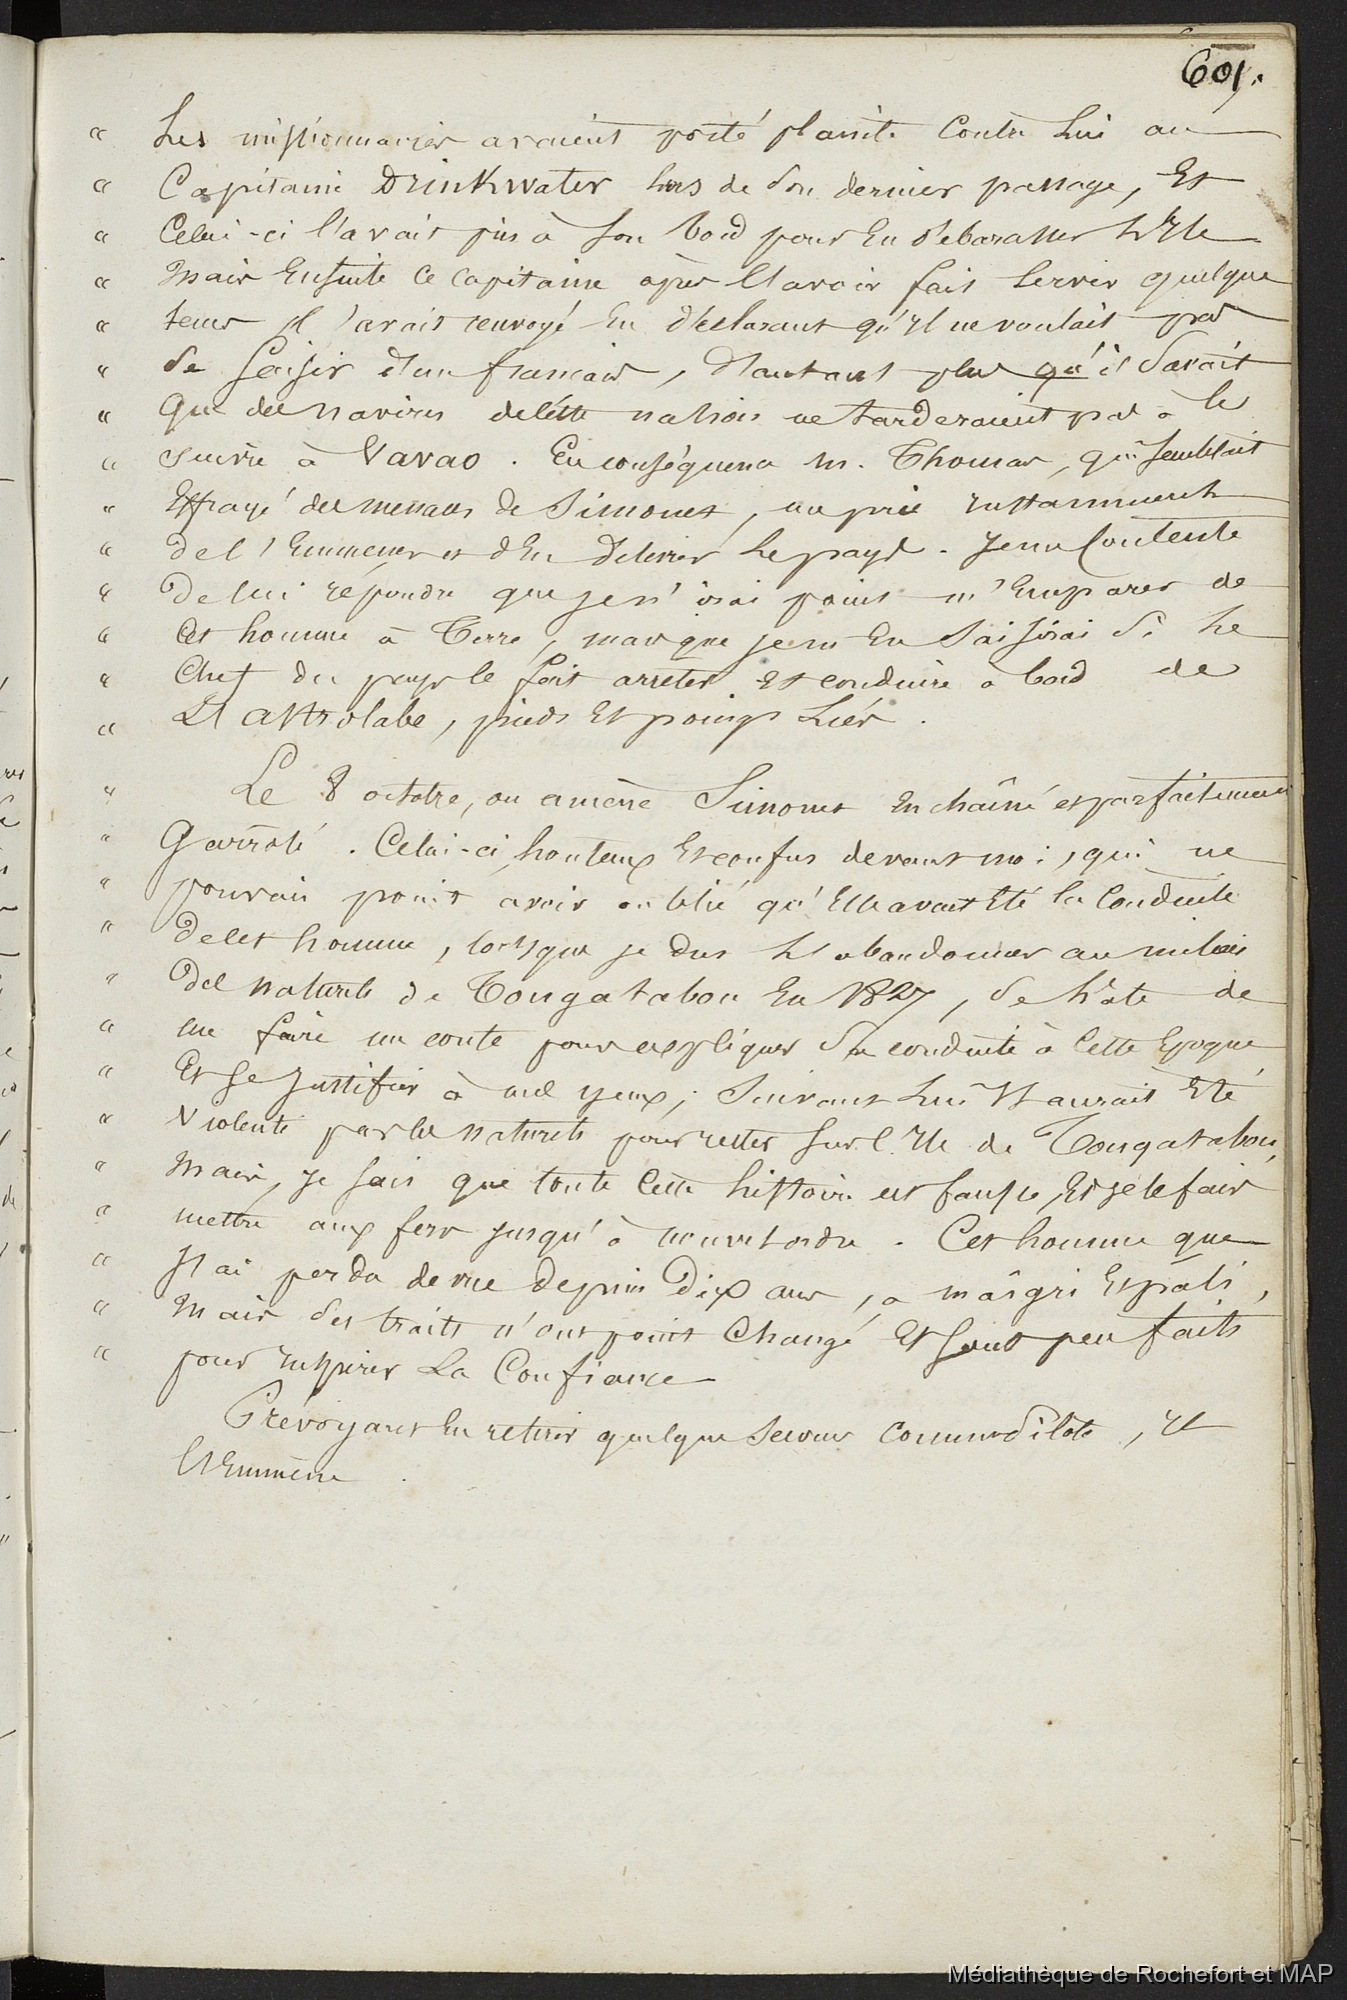 601.
" Les missionnaires avaient porté plainte Contre Lui au
" Capitaine Drinkwater lors de Son dernier passage, Et
" Celui-ci l'avait pris à Son bord pour En débarasser L'Ile
" Mais Ensuite Ce Capitaine après l'avoir fait Servir quelque
" tems il l'avait renvoyé En déclarant qu'Il ne voulait pas
" Se Saisir d'un français, d'autant plus qu'il Savait
" Que des navires de Cette nation ne tarderaient pas à le
" Suivre à Vavao. En conséquence M. Thomas, qui Semblait
" Effrayé des menaces de Simonet, me prie instamment
" de l'Emmener et d'En délivrer Le pays. Je me Contente
" De lui répondre que je n'irai point m'Emparer de
" Cet homme à Terre, mais que je m'En Saisirai Si Le
" Chef du pays le fait arrêter Et conduire à bord de
" L'Astrolabe, pieds Et poings Liés.
" Le 8 octobre, on amène Simonet Enchaîné et parfaitement
" Garrotté. Celui-ci, honteux Et confus devant moi, qui ne
" pouvais point avoir oublié qu'Elle avait Eté la Conduite
" de Cet homme, lorsque je dus L'abandonner au milieu
" Des naturels de Tongatabou En 1827, Se hâte de
" me faire un conte pour expliquer Sa conduite à Cette Epoque
" Et Se Justifier à mes yeux; Suivant Lui Il aurait Eté
" Violenté par les naturels pour rester Sur l'Ile de Tongatabou,
" Mais, je Sais que toute Cette histoire est fausse, Et je le fais
" mettre aux fers jusqu'à nouvel ordre. Cet homme que
" J'ai perdu de vue depuis Dix ans, a maigri Et pâli,
" Mais Ses traits n'ont point Changé Et Sont peu faits
" pour inspirer La Confiance
Prévoyant En retirer quelque Secours Comme Pilote, Il
l'Emmène.
Médiathèque de Rochefort et MAP